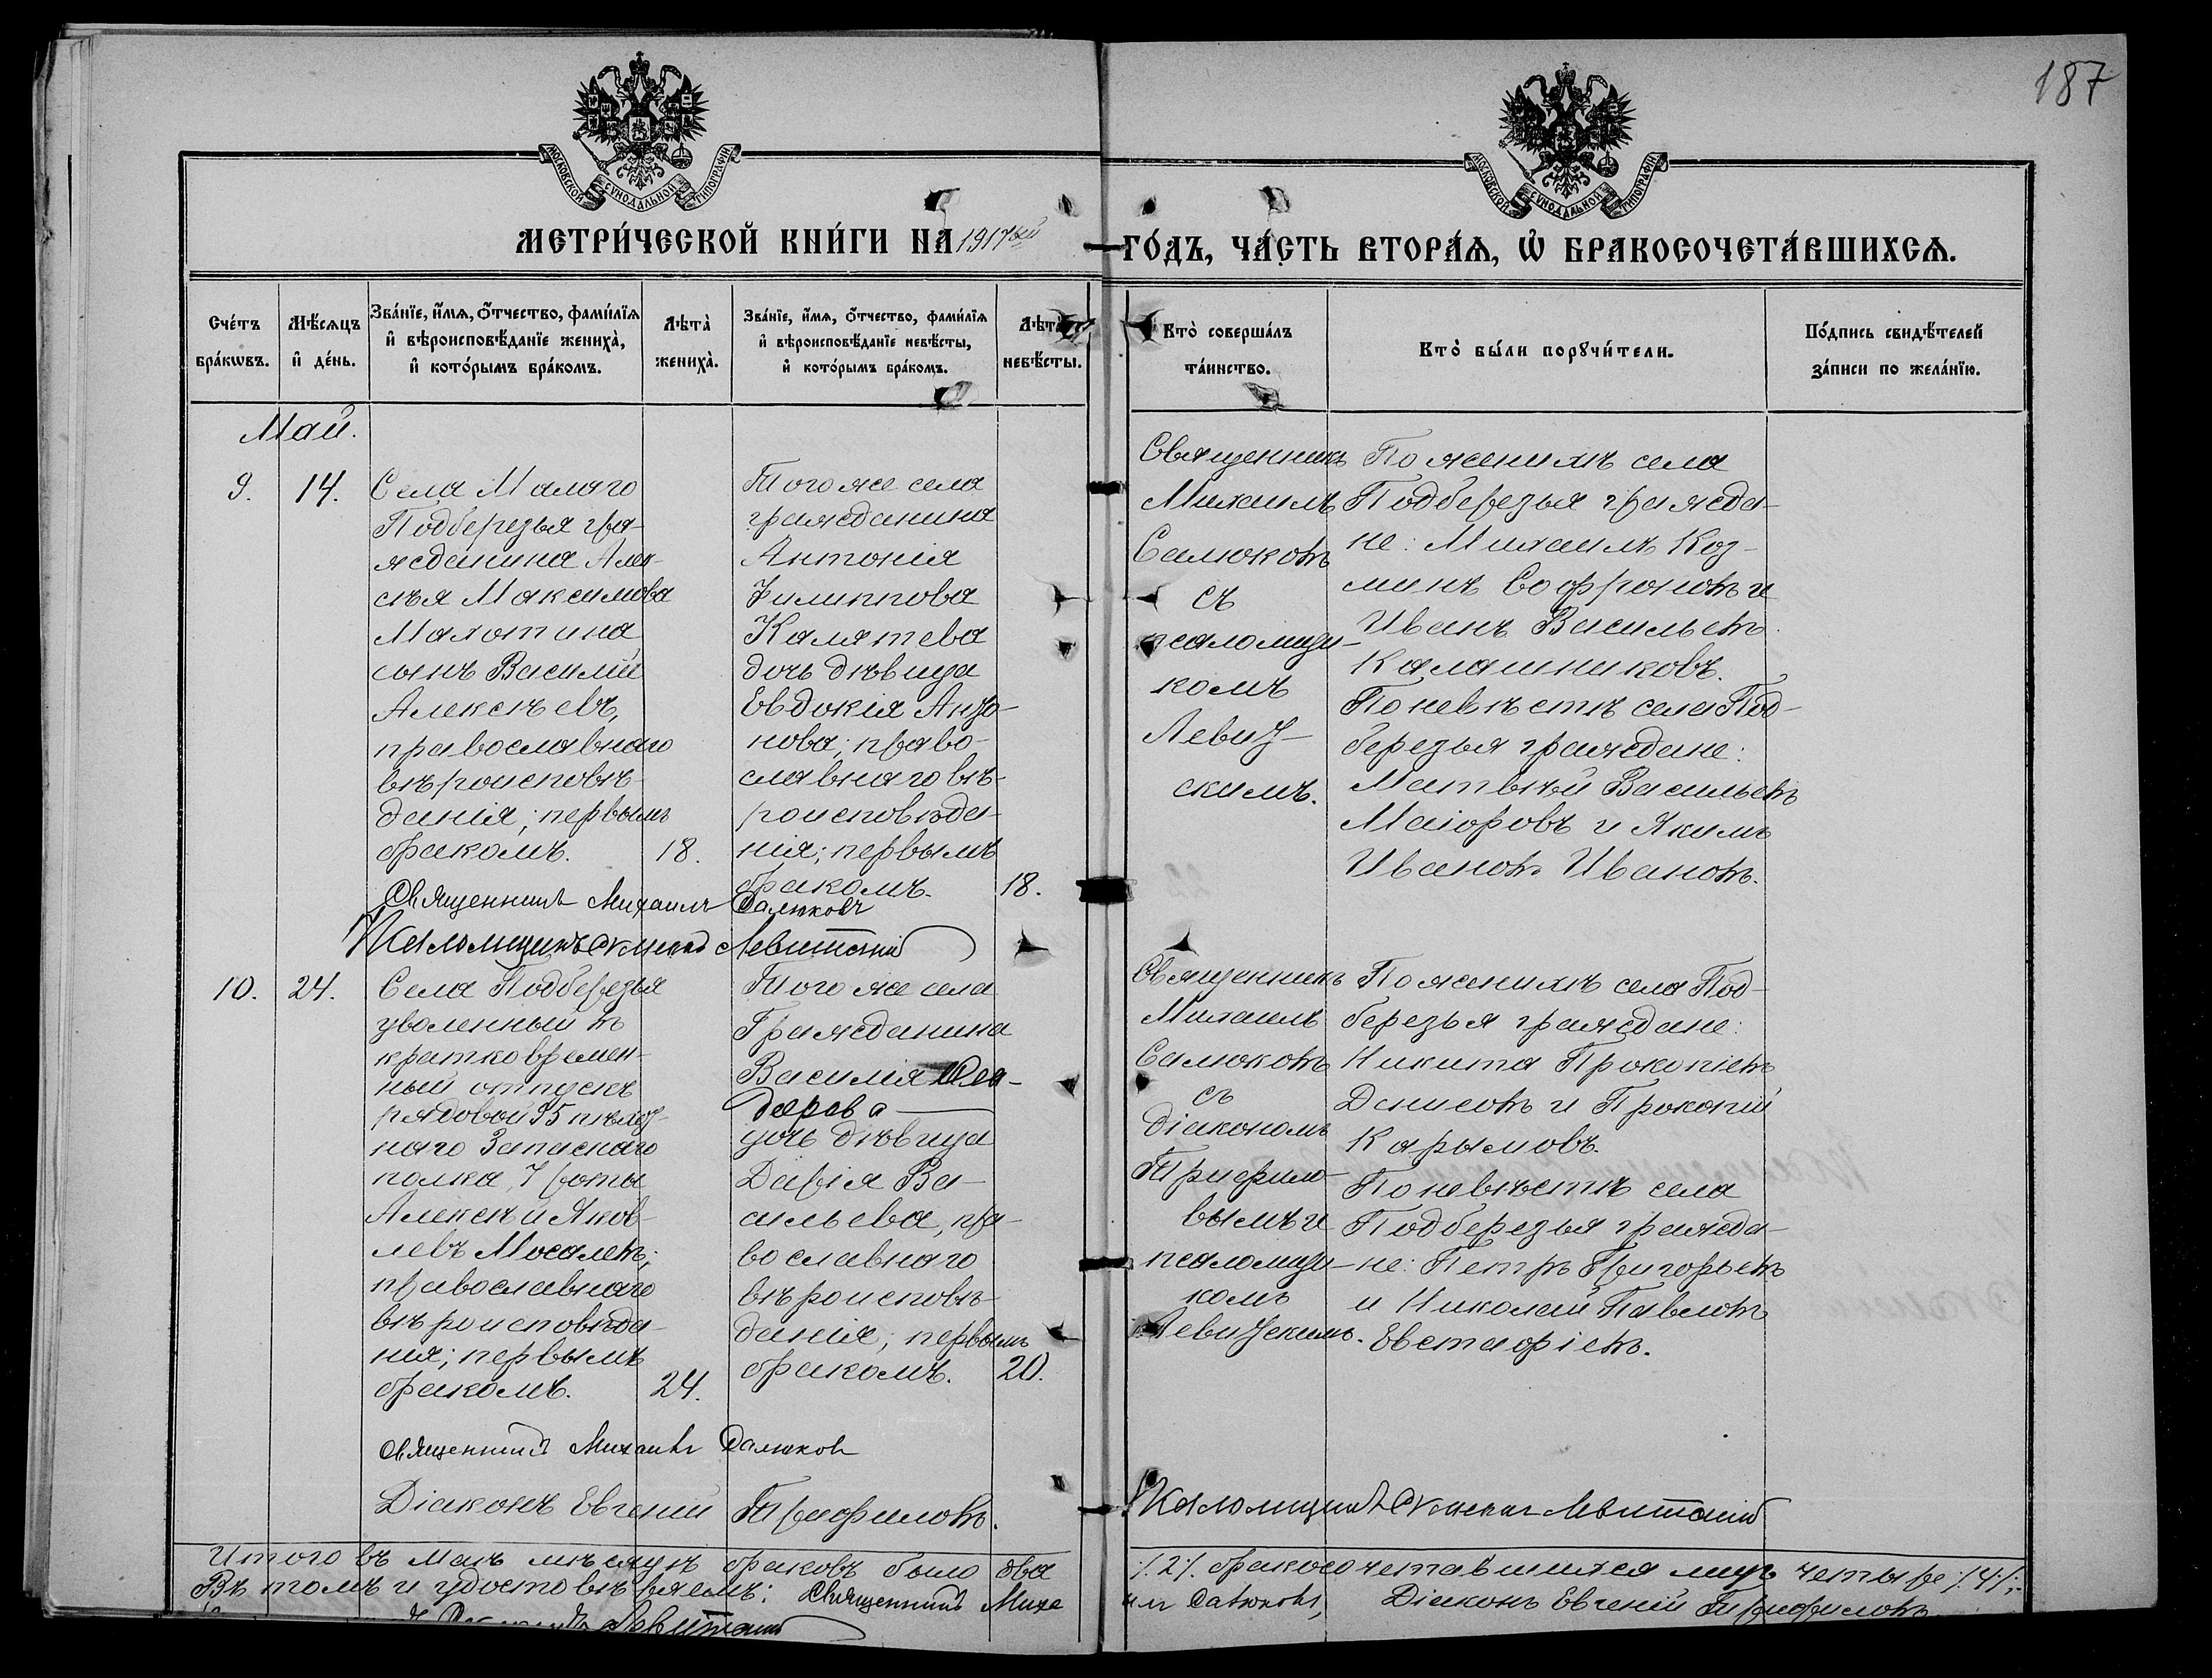 187
МОСКОВСКОЙ СУНОДАЛЬНОЙ ТИПОГРАФІИ
МОСКОВСКОЙ СУНОДАЛЬНОЙ ТИПОГРАФІИ
МЕТРИ́ЧЕСКОЙ КНИ́ГИ НА 1917ый ГО́ДЪ, ЧА́СТЬ ВТОРА́Я, Ѡ БРАКОСОЧЕТА́ВШИХСЯ.
Сче́тъ бра́кѡвъ.
Мѣ́сяцъ и҆ де́нь.
Зва́нїе, и҆́мя, ѻ҆́тчество, фами́лїя и҆ вѣроисповѣ́данїе жениха̀, и҆ кото́рымъ бра́комъ.
Лѣта̀ жениха̀.
Зва́нїе, и҆́мя, ѻ҆́тчество, фами́лїя и҆ вѣроисповѣ́данїе невѣ́сты, и҆ кото́рымъ бра́комъ.
Лѣта̀ невѣ́сты.
Кто̀ соверша́лъ та́инство.
Кто̀ бы́ли порꙋчи́тели.
По́дпись свидѣ́телей за́писи по жела́нїю.
Май.
9.
14.
Села Малаго
Подберезья гра-
жданина Алек-
сѣя Максимова
Махотина
сынъ Василій
Алексѣевъ,
православнаго
вѣроисповѣ-
данія; первымъ
бракомъ.
18.
Того же села
гражданина
Антонія
Филиппова
Калятева
дочь дѣвица
Евдокія Анто-
нова; право-
славнаго вѣ-
роисповѣда-
нія; первымъ
бракомъ.
18.
Священникъ
Михаилъ
Салюковъ
съ
псаломщи-
комъ
Левит-
скимъ.
По женихѣ села
Подберезья гражда-
не: Михаилъ Коз-
минъ Софроновъ и
Иванъ Васильевъ
Калашниковъ.
По невѣстѣ села Под-
березья граждане:
Матвѣй Васильевъ
Маіоровъ и Якимъ
Ивановъ Ивановъ.
Священникъ Михаилъ Салюковъ
Псаломщикъ Левитскій
10.
24.
Села Подберезья
уволенный въ
кратковремен-
ный отпускъ
рядовой 95 пѣхот-
наго Запаснаго
полка, 7 роты
Алексѣй Яков-
левъ Мосалевъ;
православнаго
вѣроисповѣда-
нія; первымъ
бракомъ.
24.
Того же села
Гражданина
Василія
дочь дѣвица
Дарія Ва-
сильева, пра-
вославнаго
вѣроисповѣ-
данія; первымъ
бракомъ.
20.
Священникъ
Михаилъ
Салюковъ
съ
діакономъ
Трифило-
вымъ и
псаломщи-
комъ
Левитскимъ.
По женихѣ села Под-
березья граждане:
Никита Прокопіевъ
Денисовъ и Прокопій
Карымовъ.
По невѣстѣ села
Подберезья гражда-
не: Петръ Григорьевъ
и Николай Павловъ
Евстафіевъ.
Священникъ Михаилъ Салюковъ
Діаконъ Евгеній Трифиловъ.
Псаломщикъ Левитскій
Итого въ маѣ мѣсяцѣ браковъ было два /2/. бракосочетавшихся лицъ четыре /4/.
Въ томъ и удостовѣряемъ: Священникъ Михаилъ Салюковъ, Діаконъ Евгеній Трифиловъ
Левитскій